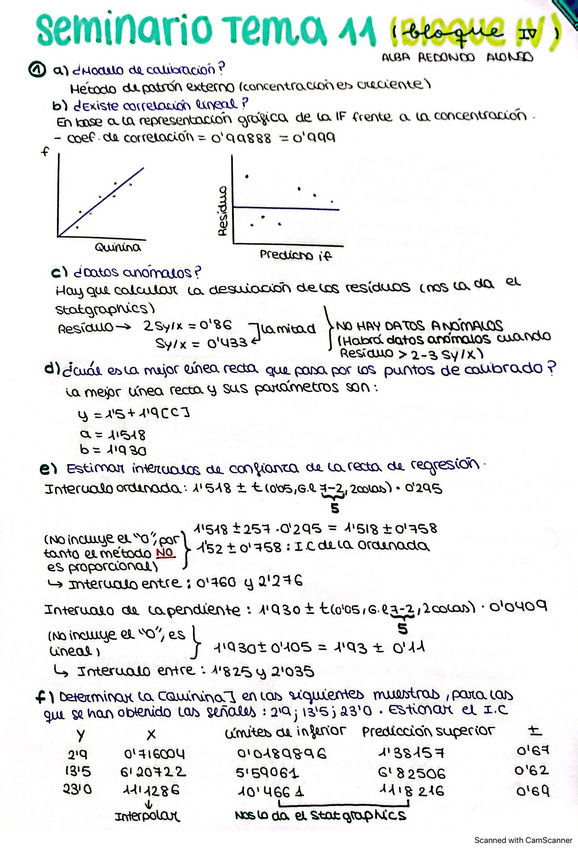 Seminario Tema 11 (bloque IV)
ALBA REDONDO ALONSO
① a) ¿Modelo de calibración?
Método de patrón externo (concentraciones creciente)
b) ¿Existe correlación lineal?
En base a la representación gráfica de la IF frente a la concentración.
- coef. de correlación = 0'99888 = 0'999
f
Quinina
Residuo
Predicho if
c) ¿Datos anómalos?
Hay que calcular la desviación de los residuos (nos la da el
Statgraphics)
Residuo → 2 Sy/x = 0'86
Sy/x = 0'433
la mitad
NO HAY DATOS ANÓMALOS
(Habrá datos anómalos cuando
Residuo > 2-3 Sy/x)
d) ¿Cuál es la mejor línea recta que pasa por los puntos de calibrado?
La mejor línea recta y sus parámetros son:
y = 1'5 + 1'9 [C]
a = 1'518
b = 1'930
e) Estimar intervalos de confianza de la recta de regresión.
Intervalo ordenada: 1'518 ± t (0'05, G.l 7-2, 2 colas) · 0'295
5
(No incluye el "0", por
tanto el método NO
es proporcional)
1'518 ± 257 · 0'295 = 1'518 ± 0'758
1'52 ± 0'758 : I.C de la ordenada
↳ Intervalo entre : 0'760 y 2'276
Intervalo de la pendiente : 1'930 ± t (0'05, G.l 7-2, 2 colas) · 0'0409
5
(No incluye el "0", es
lineal)
1'930 ± 0'105 = 1'93 ± 0'11
↳ Intervalo entre : 1'825 y 2'035
f) Determinar la [Quinina] en las siguientes muestras, para las
que se han obtenido las señales : 2'9 ; 13'5 ; 23'0 . Estimar el I.C
y x Límites de inferior Predicción superior ±
2'9 0'716004 0'0189896 1'38157 0'67
13'5 6'20722 5'59061 6'82506 0'62
23'0 11'1286 10'4661 11'8216 0'69
Interpolar
Nos lo da el Statgraphics
Scanned with CamScanner